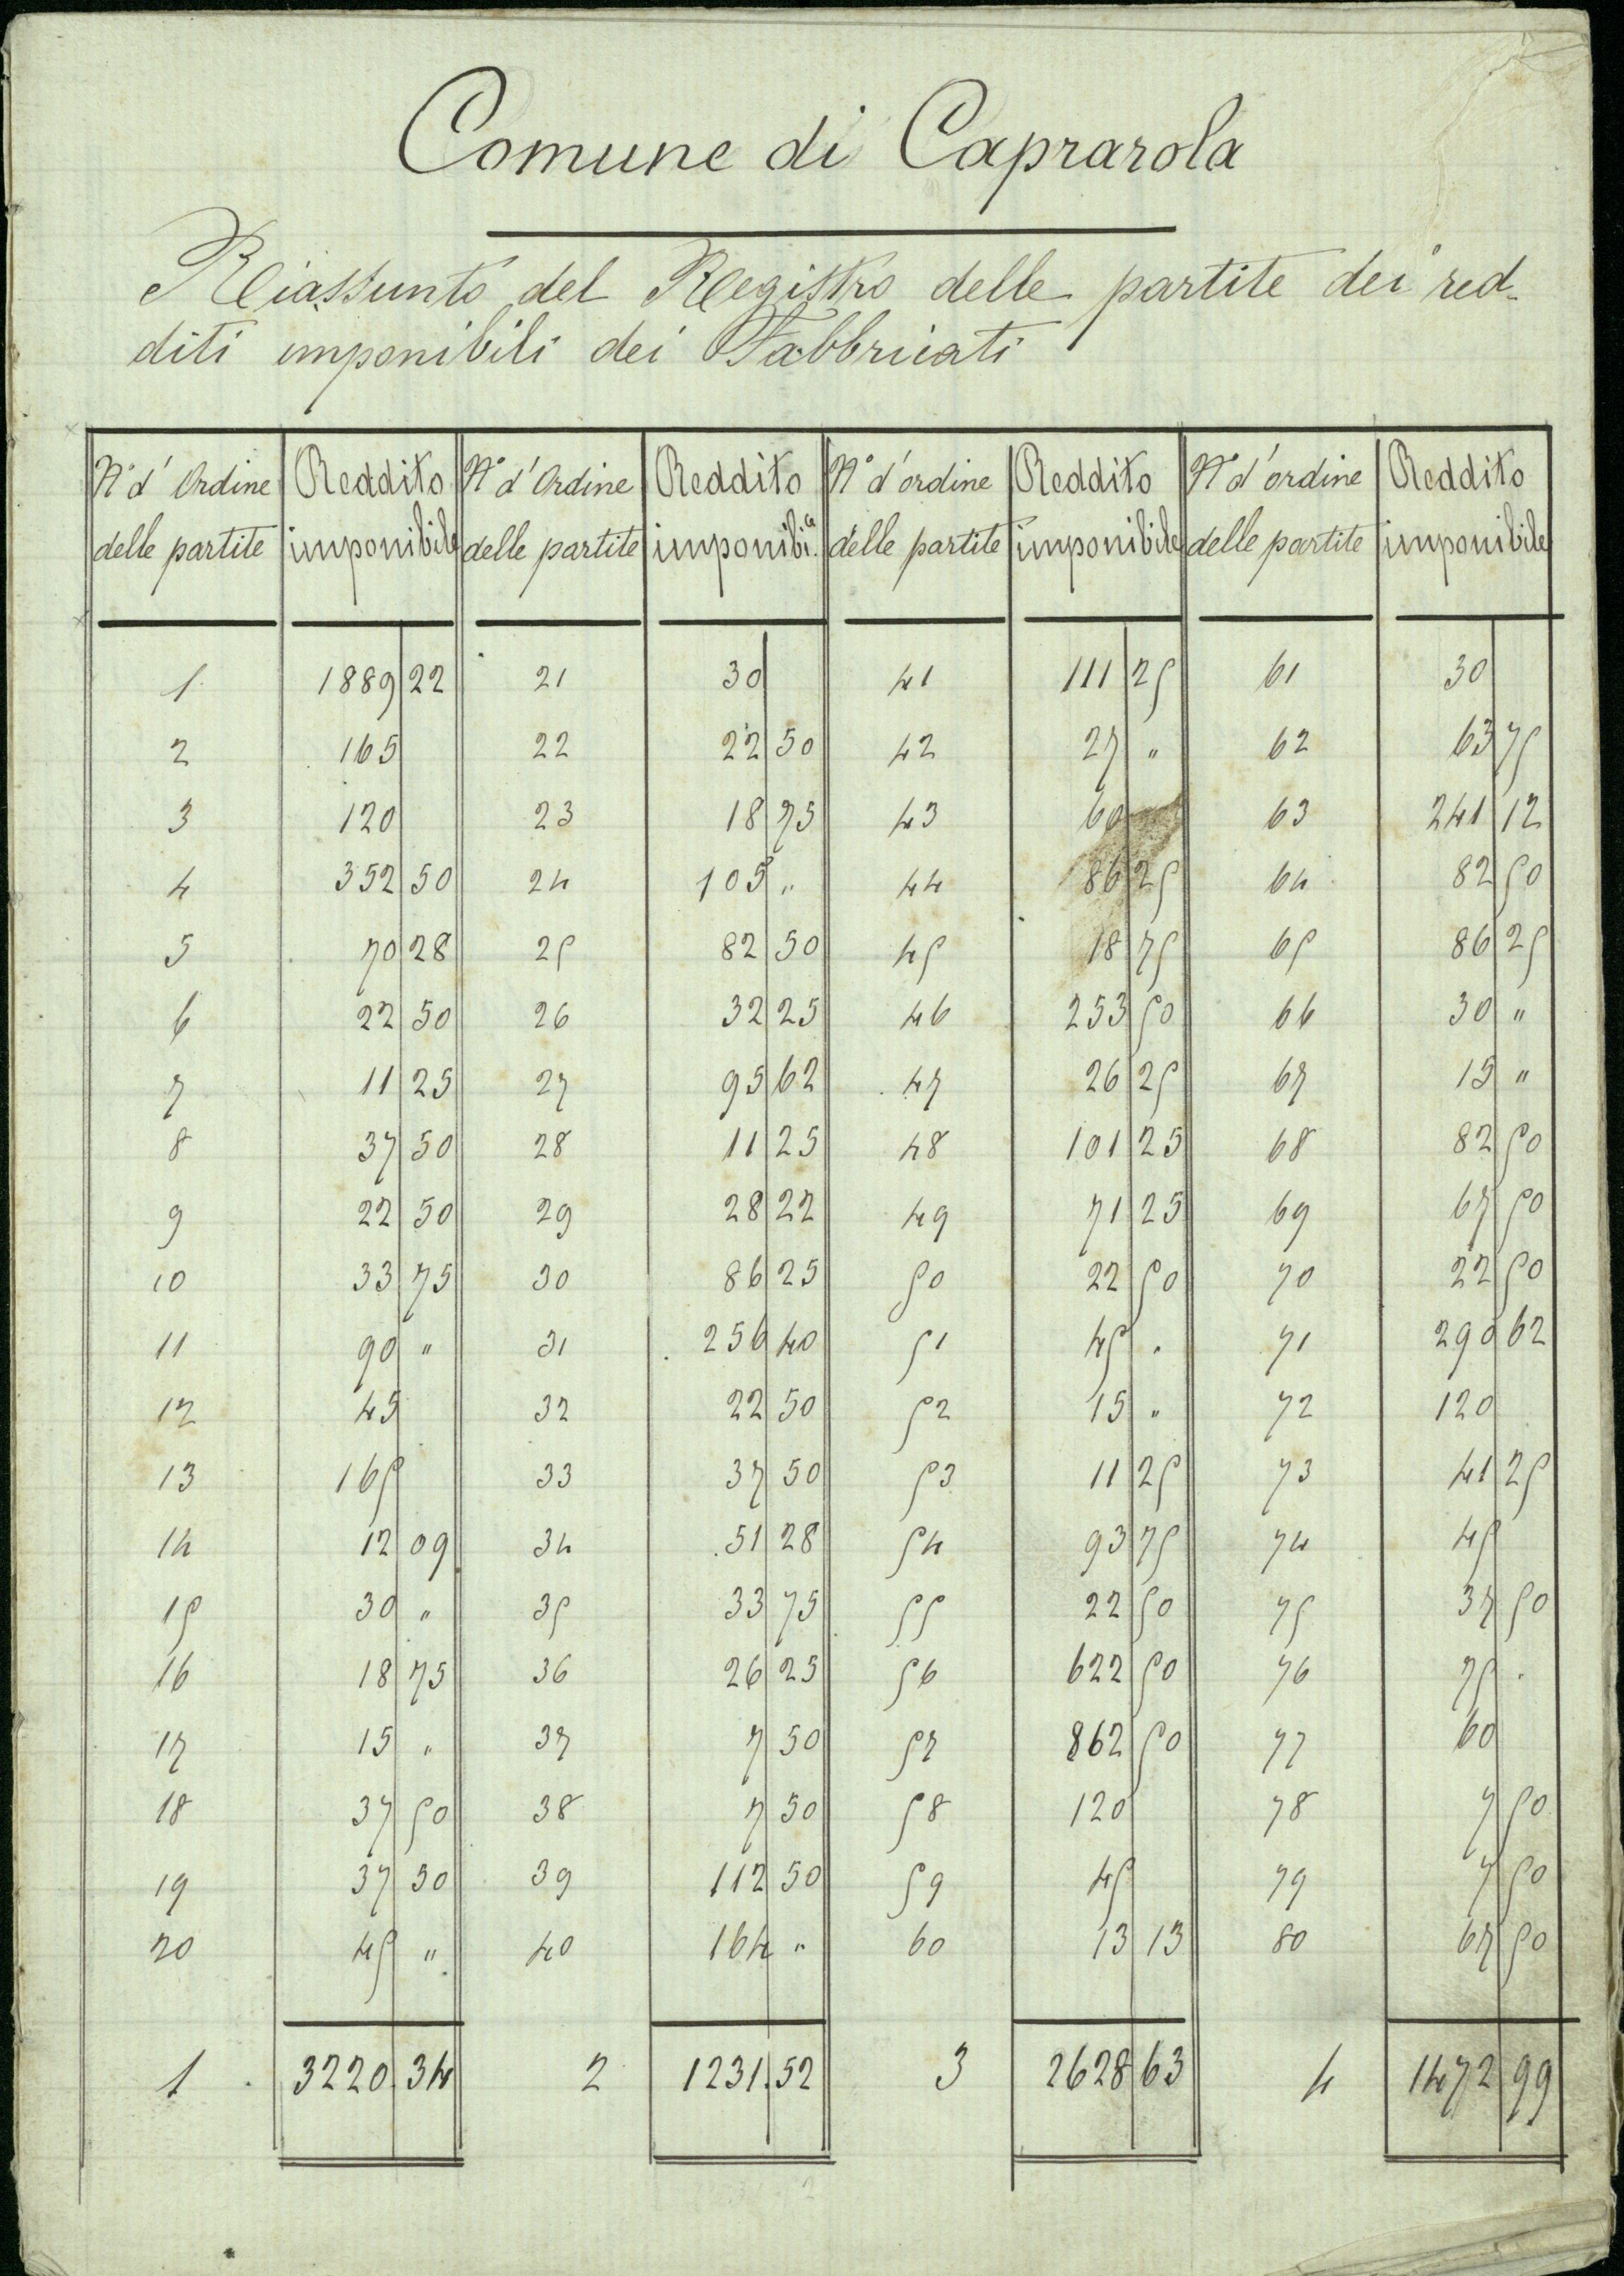 Comune di Caprarola
Riassunto del Registro delle partite dei red-
diti imponibili dei Fabbricati
N° d' Ordine delle partite | Reddito imponibile | N° d' Ordine delle partite | Reddito imponibi.le | N° d' ordine delle partite | Reddito imponibile | N° d' ordine delle partite | Reddito imponibile
1 | 1889 22 | 21 | 30 | 41 | 111 25 | 61 | 30
2 | 165 | 22 | 22 50 | 42 | 27 " | 62 | 63 75
3 | 120 | 23 | 18 75 | 43 | 60 | 63 | 241 12
4 | 352 50 | 24 | 105 " | 44 | 86 25 | 64 | 82 50
5 | 70 28 | 25 | 82 50 | 45 | 18 75 | 65 | 86 25
6 | 22 50 | 26 | 32 25 | 46 | 253 50 | 66 | 30 "
7 | 11 25 | 27 | 95 62 | 47 | 26 25 | 67 | 15 "
8 | 37 50 | 28 | 11 25 | 48 | 101 25 | 68 | 82 50
9 | 22 50 | 29 | 28 22 | 49 | 71 25 | 69 | 67 50
10 | 33 75 | 30 | 86 25 | 50 | 22 50 | 70 | 22 50
11 | 90 " | 31 | 256 40 | 51 | 45 " | 71 | 290 62
12 | 45 | 32 | 22 50 | 52 | 15 " | 72 | 120
13 | 165 | 33 | 37 50 | 53 | 11 25 | 73 | 41 25
14 | 12 09 | 34 | 51 28 | 54 | 93 75 | 74 | 45
15 | 30 " | 35 | 33 75 | 55 | 22 50 | 75 | 37 50
16 | 18 75 | 36 | 26 25 | 56 | 622 50 | 76 | 75 .
17 | 15 " | 37 | 7 50 | 57 | 862 50 | 77 | 60
18 | 37 50 | 38 | 7 50 | 58 | 120 | 78 | 7 50
19 | 37 50 | 39 | 112 50 | 59 | 45 | 79 | 7 50
20 | 45 " | 40 | 164 " | 60 | 13 13 | 80 | 67 50
1 | 3220.34 | 2 | 1231.52 | 3 | 2628 63 | 4 | 1472 99